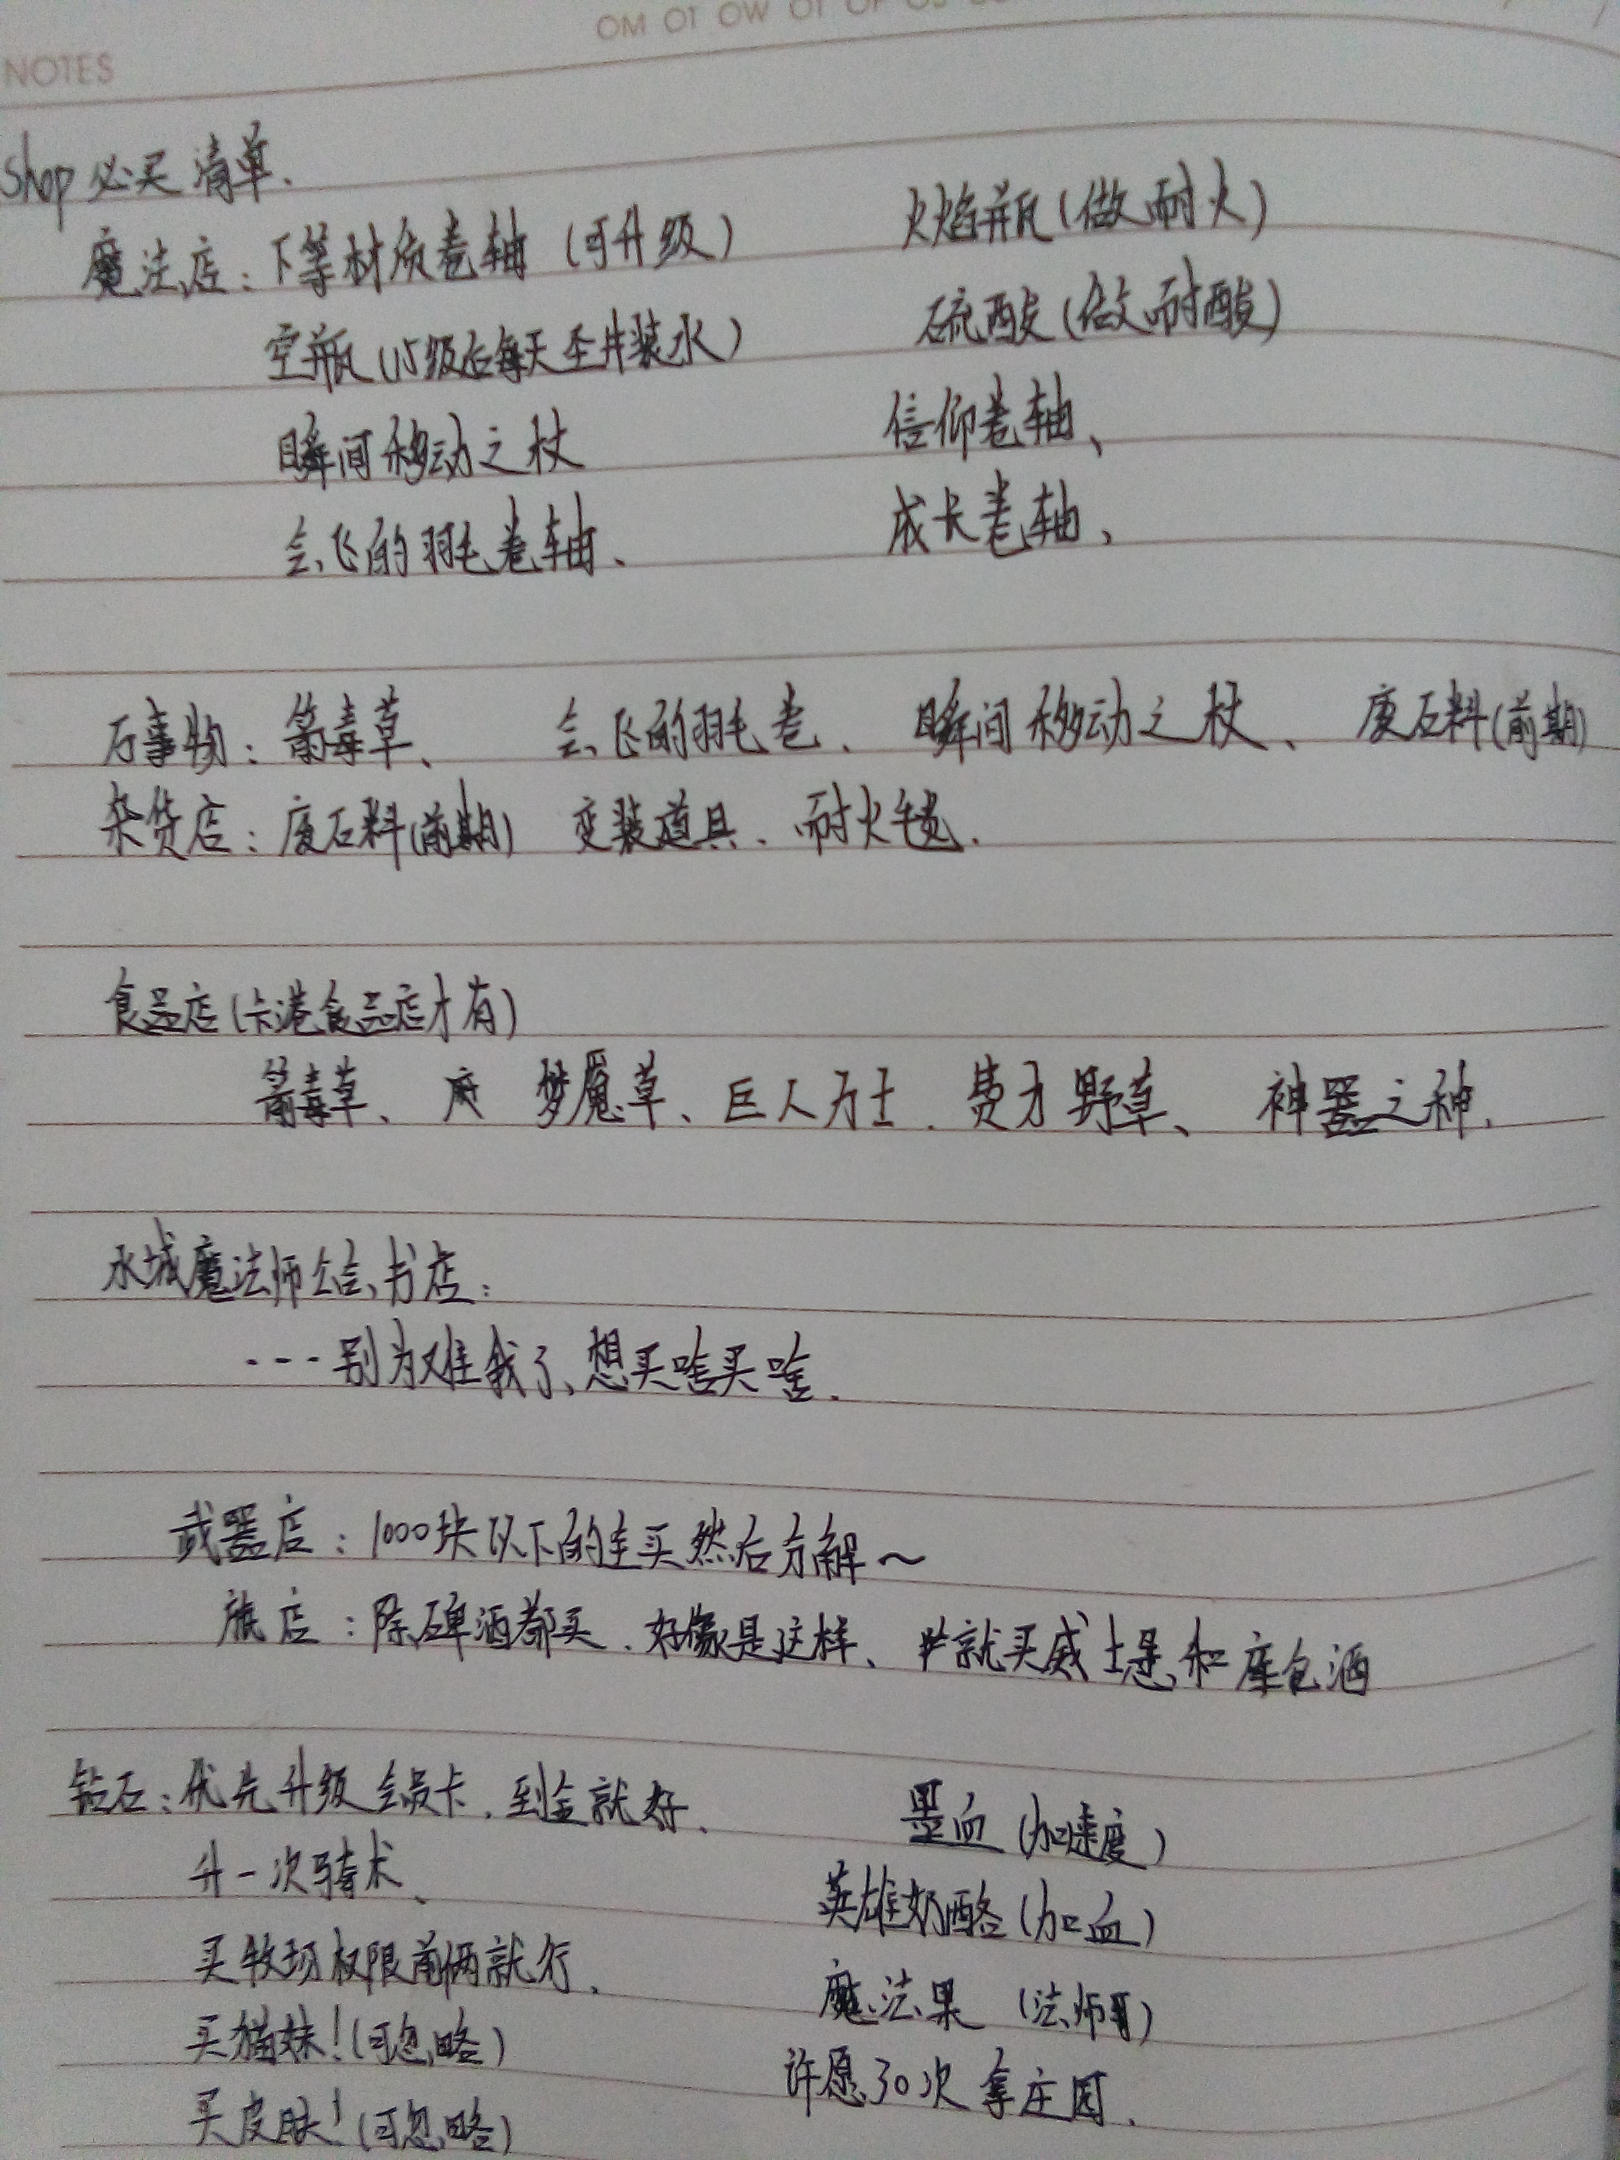 NOTES
Shop 必买清单.
魔法店：下等材质卷轴（可升级） 火焰瓶（做耐火）
空瓶（15级后每天圣井装水） 硫酸（做耐酸）
瞬间移动之杖 信仰卷轴、
会飞的羽毛卷轴、 成长卷轴、
万事物：箭毒草、 会飞的羽毛卷、 瞬间移动之杖、 废石料（前期）
杂货店：废石料（前期） 变装道具、耐火毯.
食品店（卡港食品店才有）
箭毒草、 梦魇草、巨人力士、费才野草、 神器之种.
水城魔法师公会、书店：
---别为难我了、想买啥买啥.
武器店：1000块以下的全买然后分解～
旅店：除碑酒都买、好像是这样、就买威士忌和座包酒
钻石：优先升级会员卡、到金就好、 墨血（加速度）
升一次骑术、 英雄奶酪（加血）
买牧场权限前俩就行. 魔法果（法师用）
买猫妹！（可忽略） 许愿30次拿庄园.
买皮肤！（可忽略）